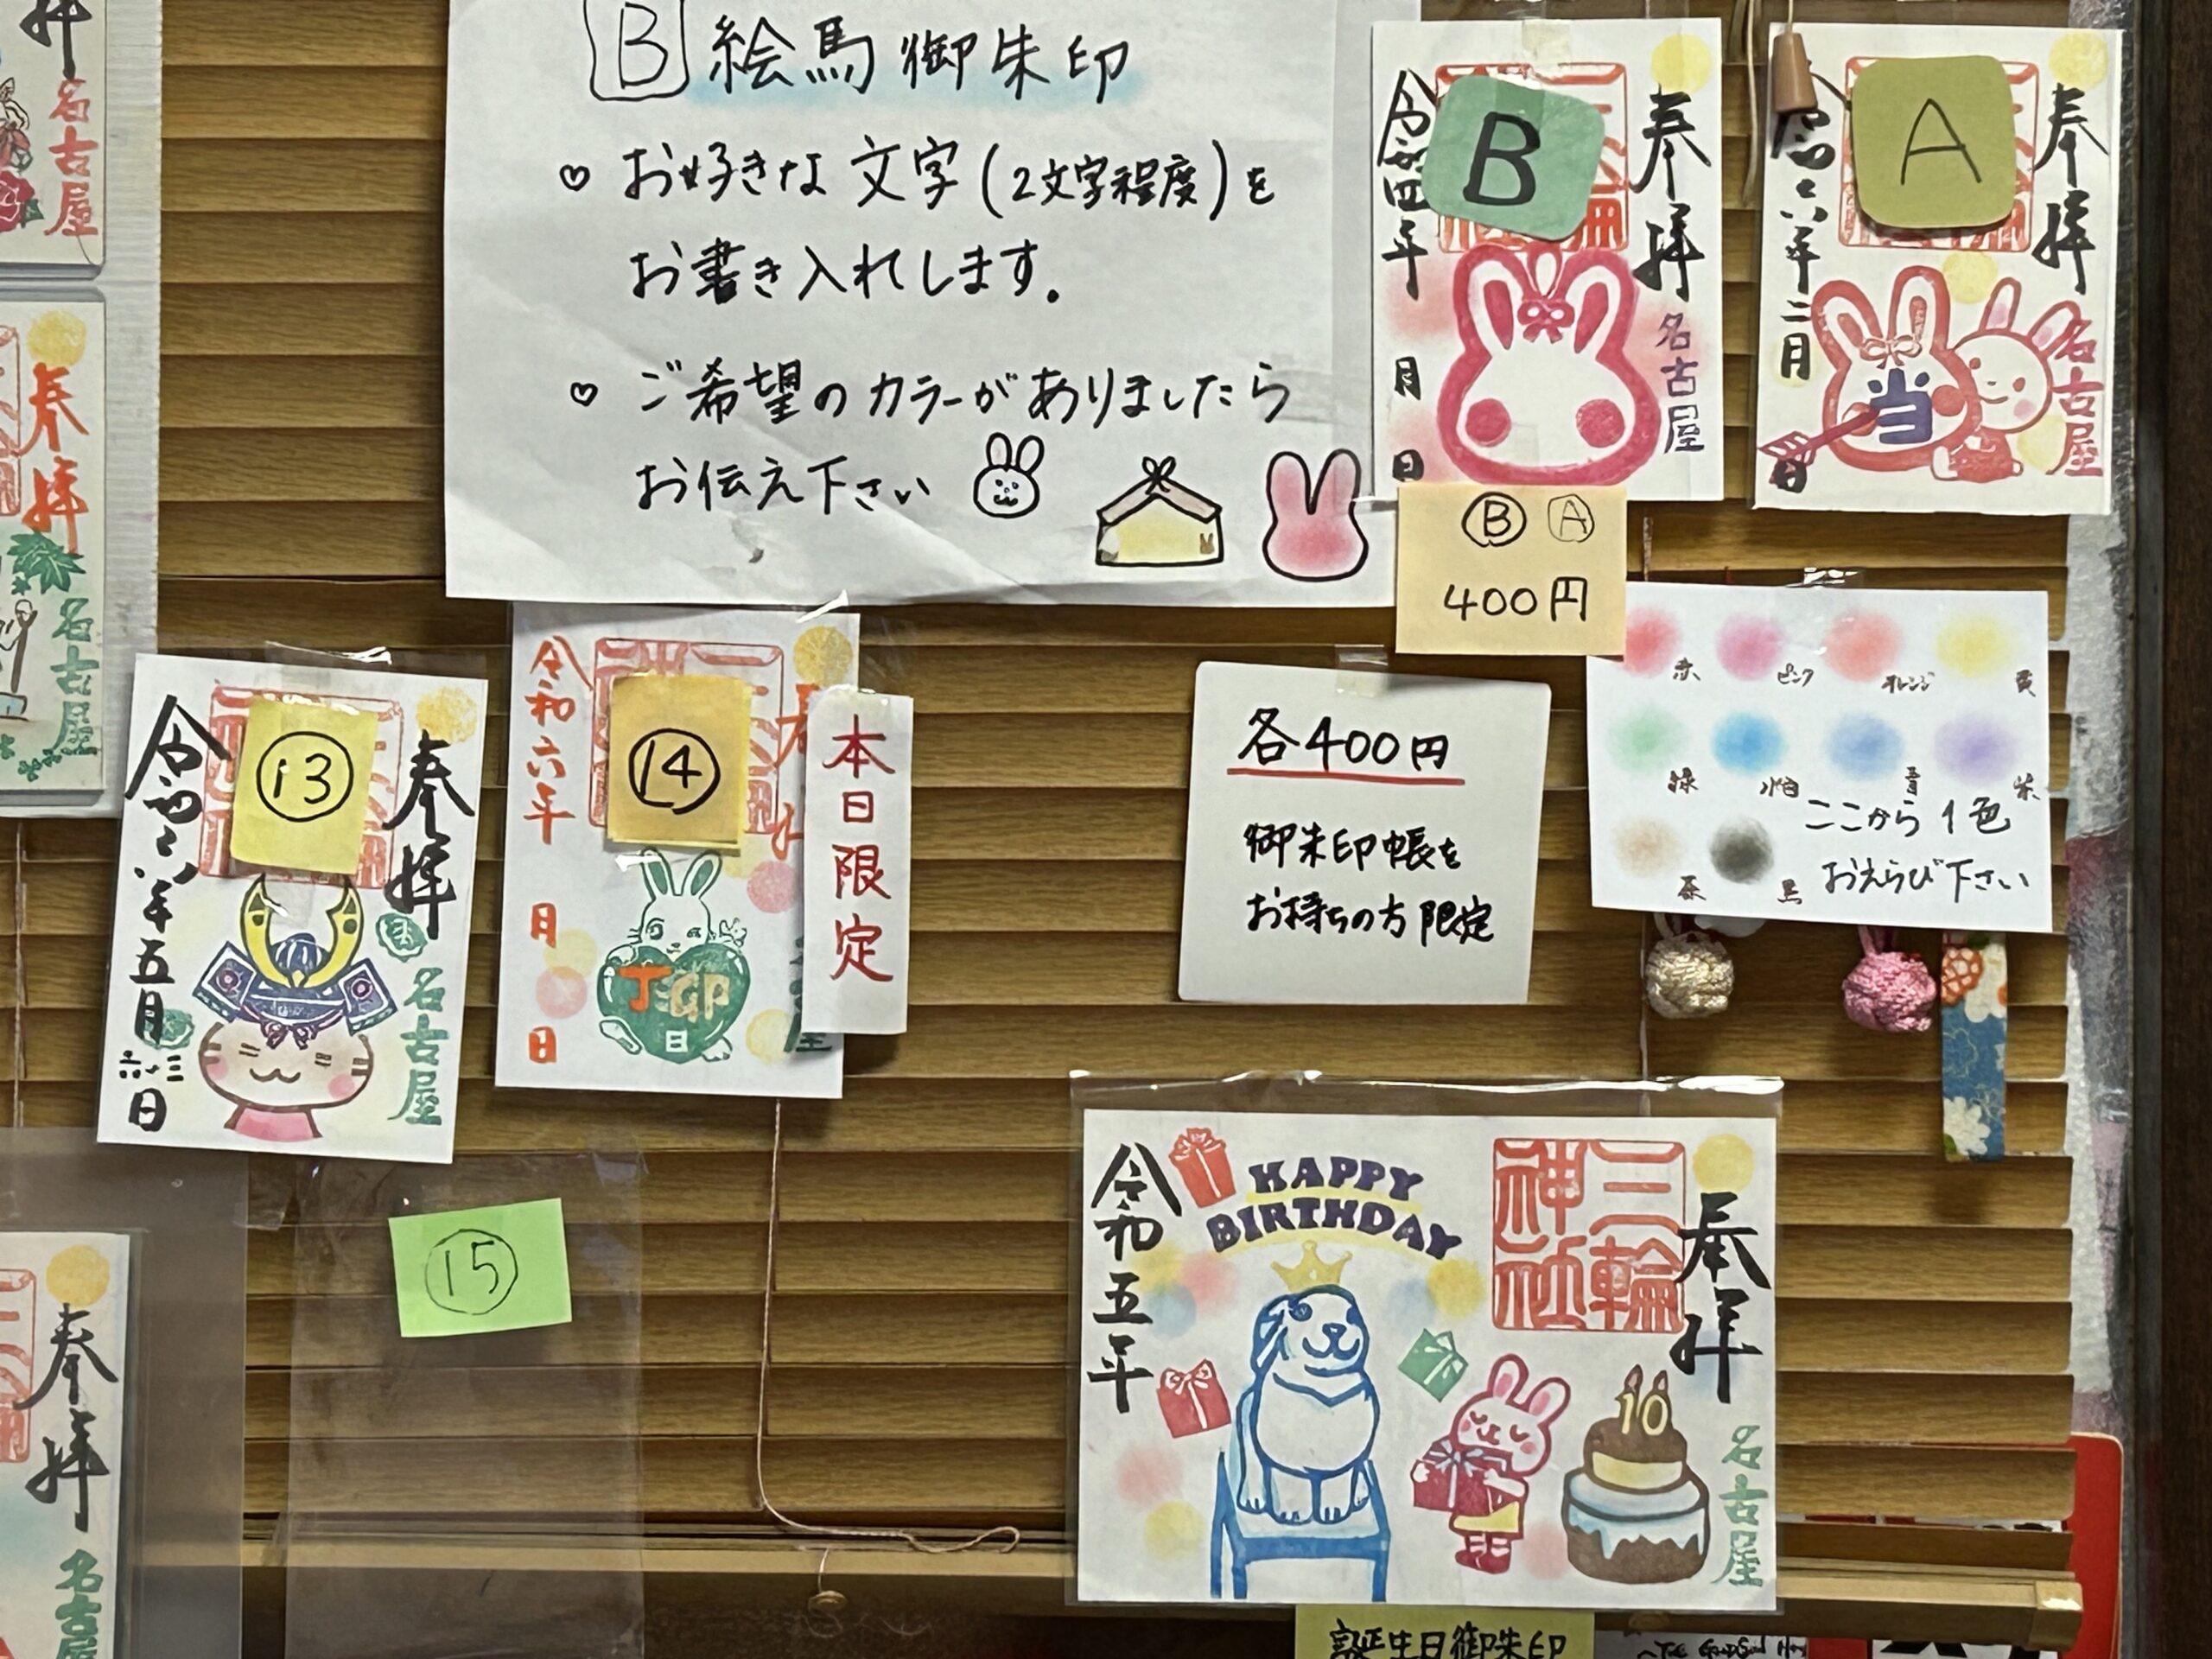 B 絵馬御朱印
♡ お好きな文字(2文字程度)を
お書き入れします。
♡ ご希望のカラーがありましたら
お伝え下さい
奉拝
B
令和四年 月 日
名古屋
奉拝
A
令和六年二月 日
当
名古屋
Ⓑ Ⓐ
400円
各400円
御朱印帳を
お持ちの方限定
赤 ピンク オレンジ 黄
緑 水色 青 紫
茶 黒
ここから1色
おえらび下さい
名古屋
奉拝
名古屋
奉拝
⑬
令和六年五月
日
名古屋
⑭
令和六年 月 日
本日限定
⑮
奉拝
名古屋
奉拝
三輪神社
HAPPY
BIRTHDAY
令和五年
10
名古屋
誕生日御朱印